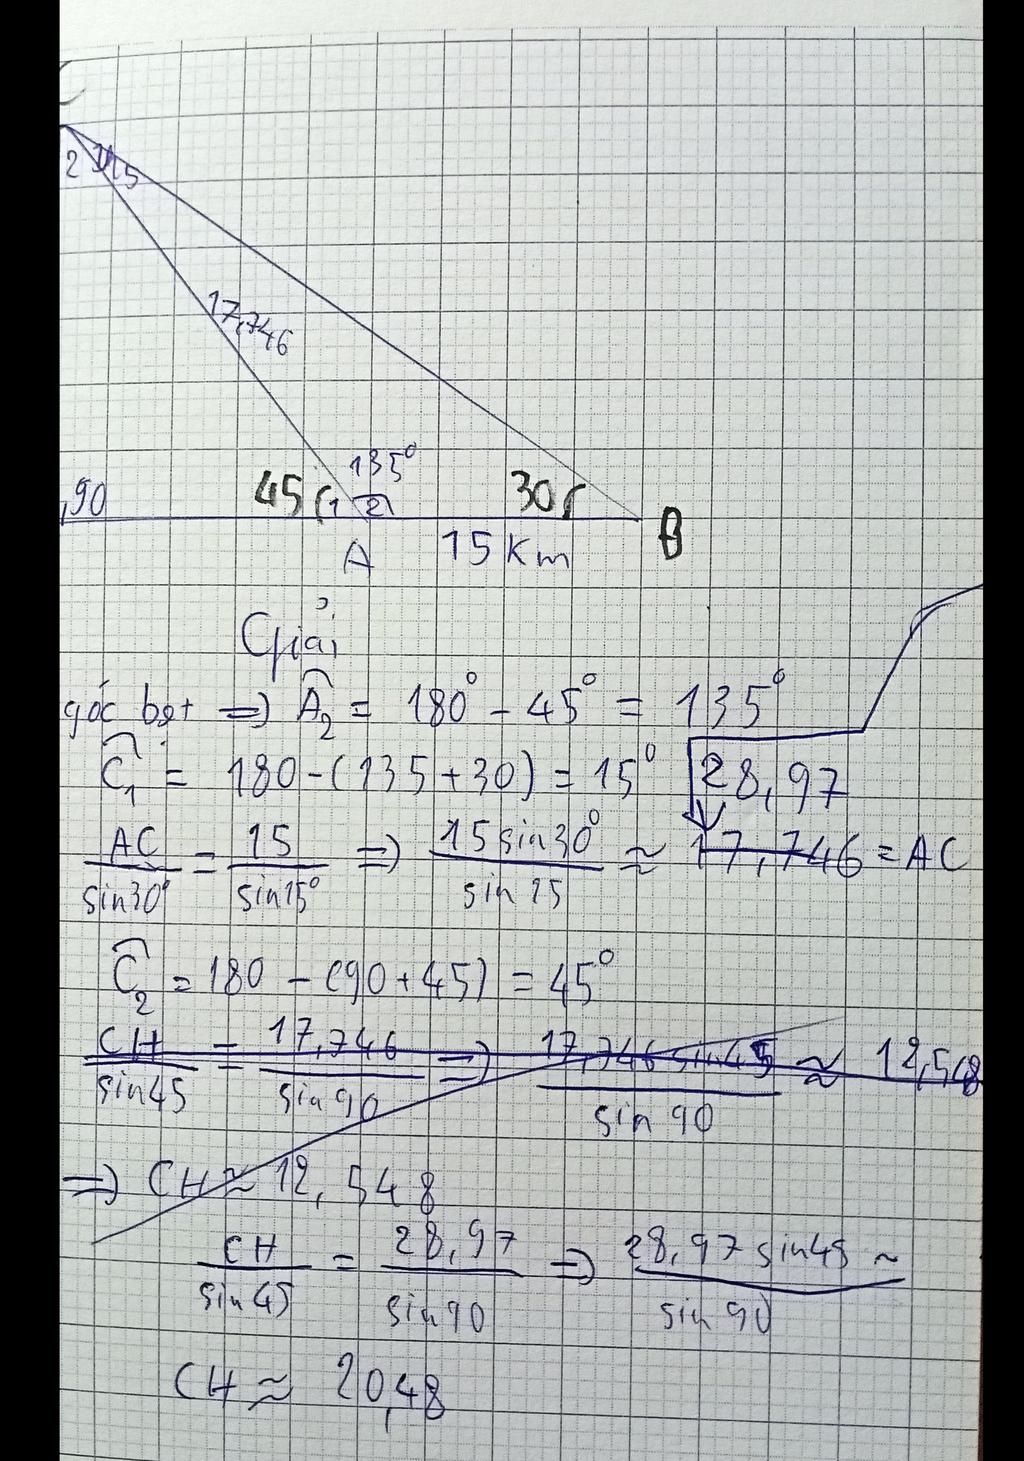 2 1 15
17,746
135°
,90 45 1 2 30 B
A 15 Km
Giải
góc bẹt => A₂ = 180° - 45° = 135°
C₁ = 180 - (135 + 30) = 15° 28,97
AC/sin30° = 15/sin15° => 15 sin30°/sin 15 ≈ 17,746 = AC
C₂ = 180 - (90 + 45) = 45°
CH/sin45 = 17,746/sin 90 => 17,746 sin 45/sin 90 ≈ 12,548
=> CH ≈ 12,548
CH/sin 45 = 28,97/sin 90 => 28,97 sin 45/sin 90 ~
CH ≈ 20,48